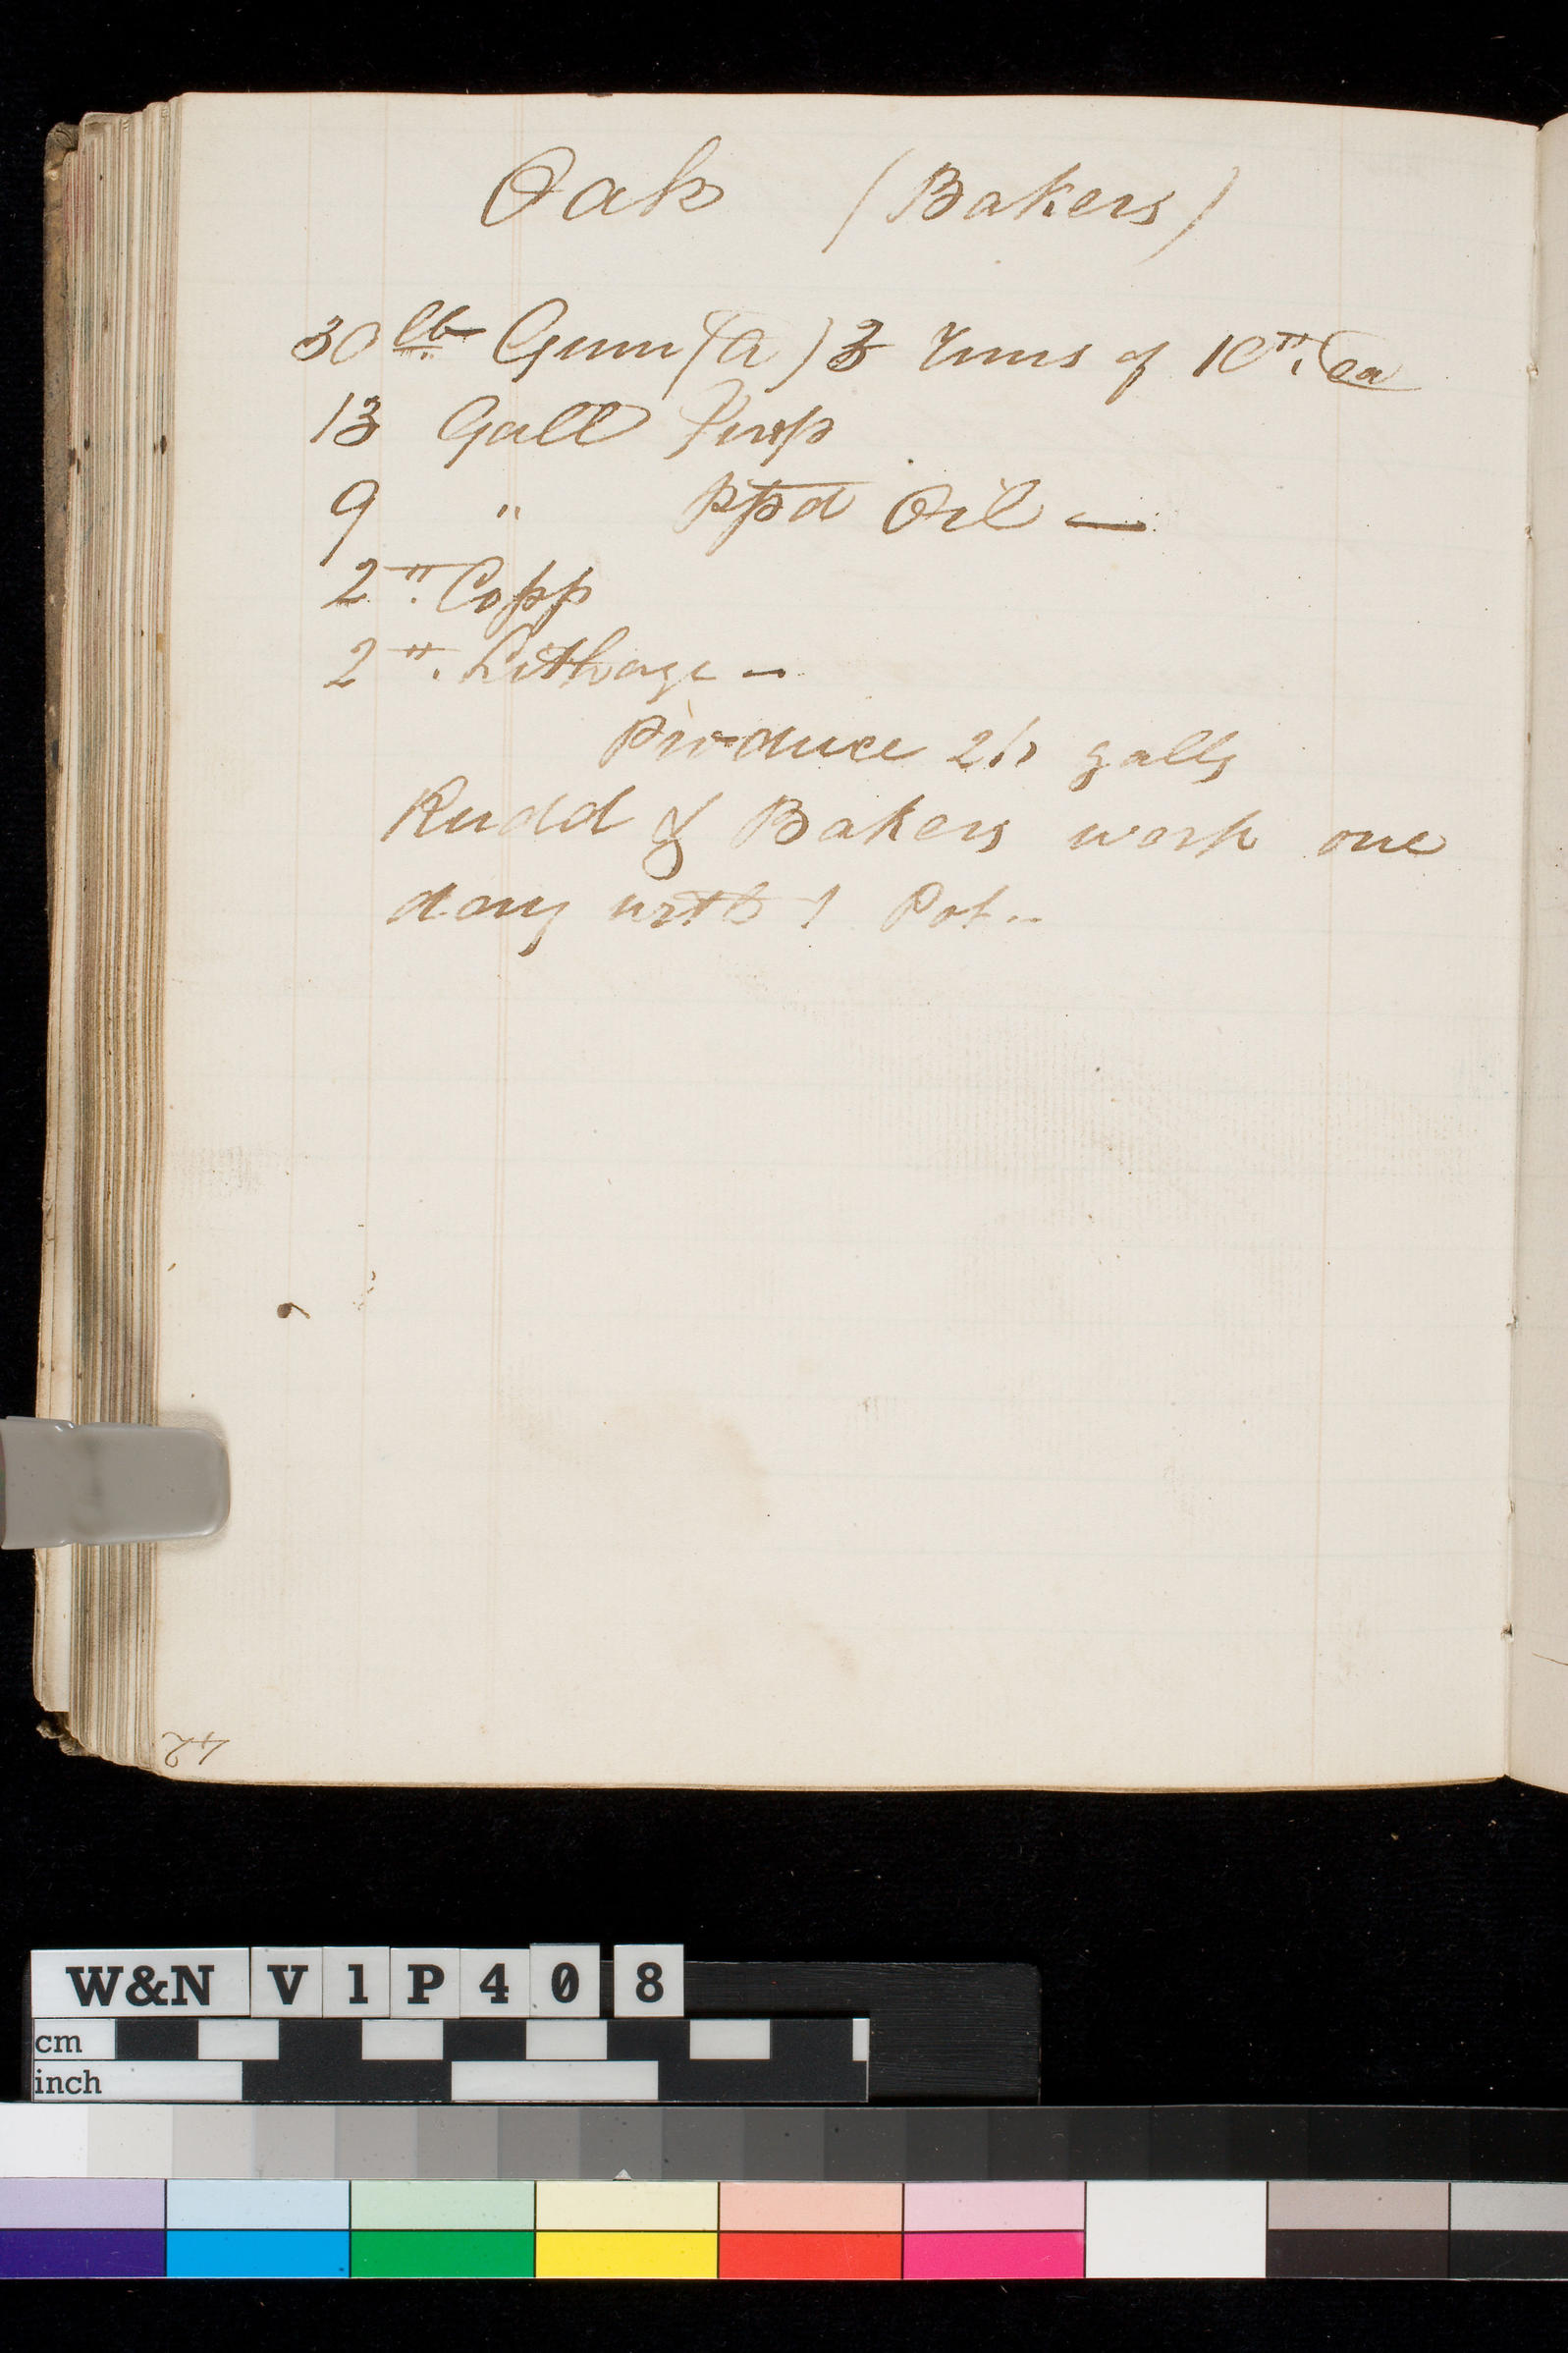 Oak (Bakers)
30 lb Gum (A) 3 Runs of 10 lb ea
13 Gall Turp
9 " ppd Oil —
2 lb Copp
2 lb Litharge —
Produce galls
Rudd & Bakers work one
day with 1 Pot —
42
W&N V1P408
cm
inch